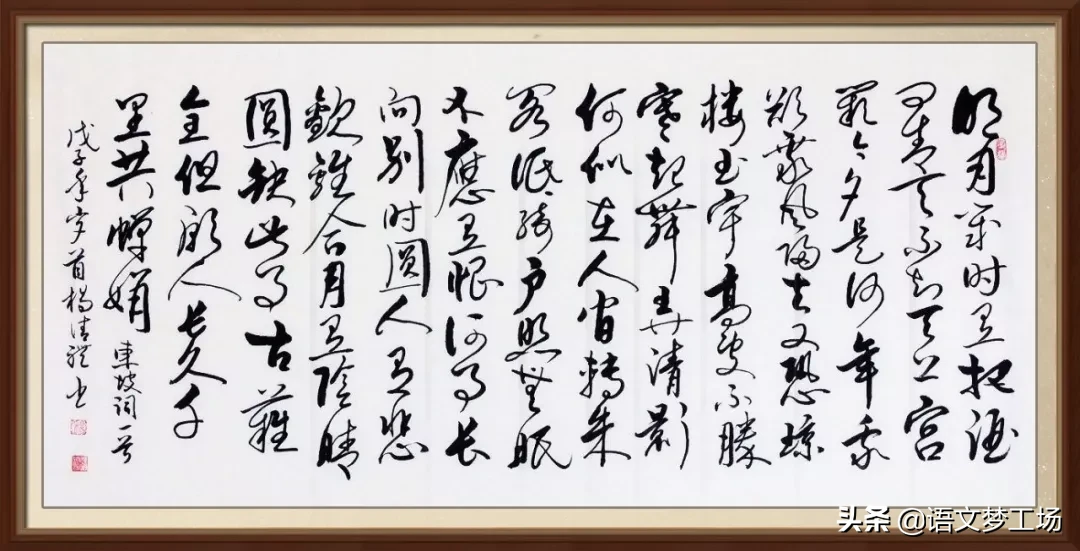 明月几时有把酒
问青天不知天上宫
阙今夕是何年我
欲乘风归去又恐琼
楼玉宇高处不勝
寒起舞弄清影
何似在人间轉朱
阁低绮户照無眠
不應有恨何事长
向别时圓人有悲
歡離合月有陰晴
圓缺此事古難
全但願人长久千
里共嬋娟 東坡词一首
戊子年岁首楊清 书
头条 @语文梦工场